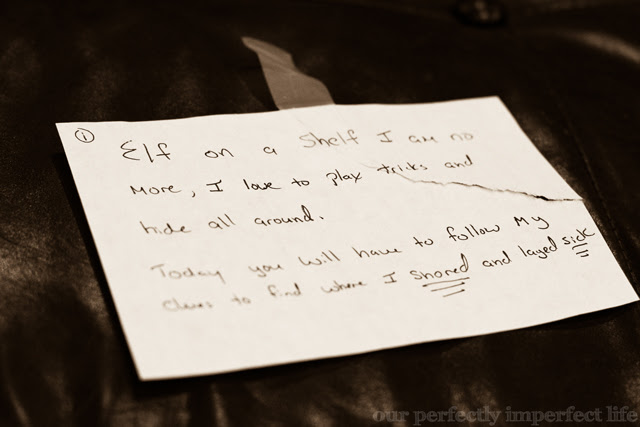 ① Elf on a Shelf I am no
more, I love to play tricks and
hide all around.
Today you will have to follow my
clues to find where I snored and layed sick
our perfectly imperfect life